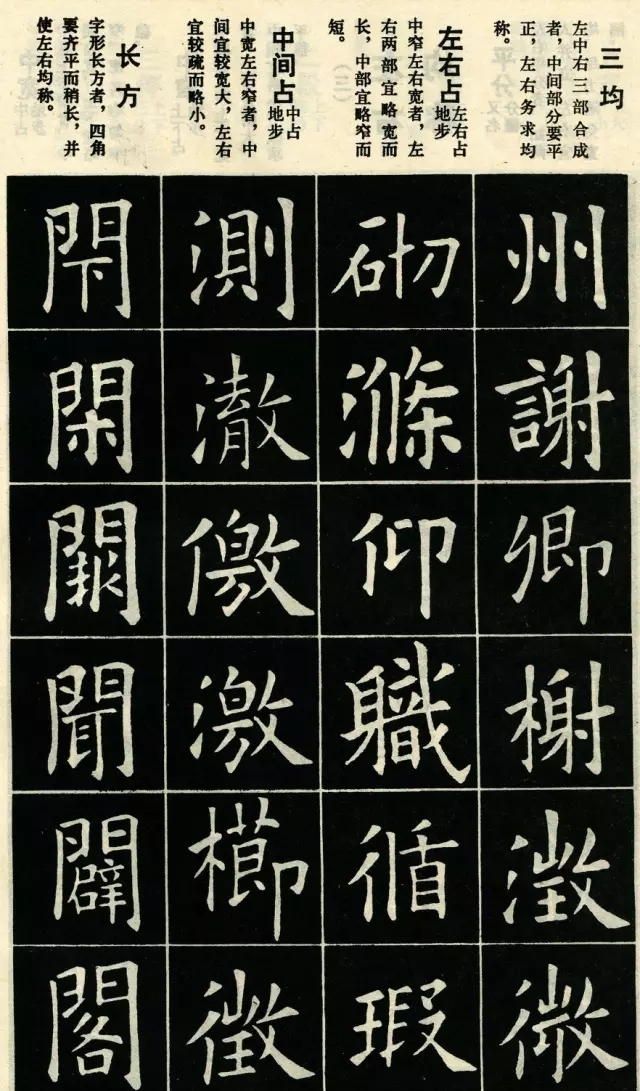 三均
左中右三部合成
者，中间部分要平
正，左右务求均
称。
左右占地步
左右占
中窄左右宽者，左
右两部宜略宽而
长，中部宜略窄而
短。
中间占地步
中占
中宽左右窄者，中
间宜较宽大，左右
宜较疏而略小。
长方
字形长方者，四角
要齐平而稍长，并
使左右均称。
州謝卿榭澂微
砌滌仰軄循瑕
測澈儌激櫛徵
閇閑聞闢閣